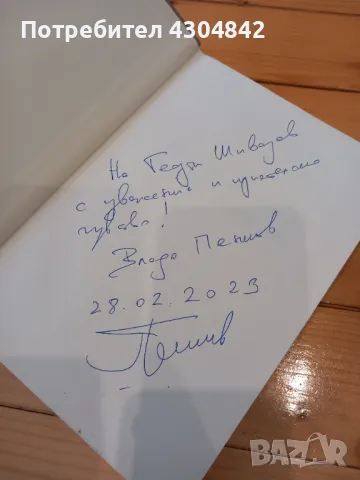 Потребител 4304842
На Геори Шивазов
с уважение и приятелско
чувство!
Владо Пенков
28.02.2023
BAZAR